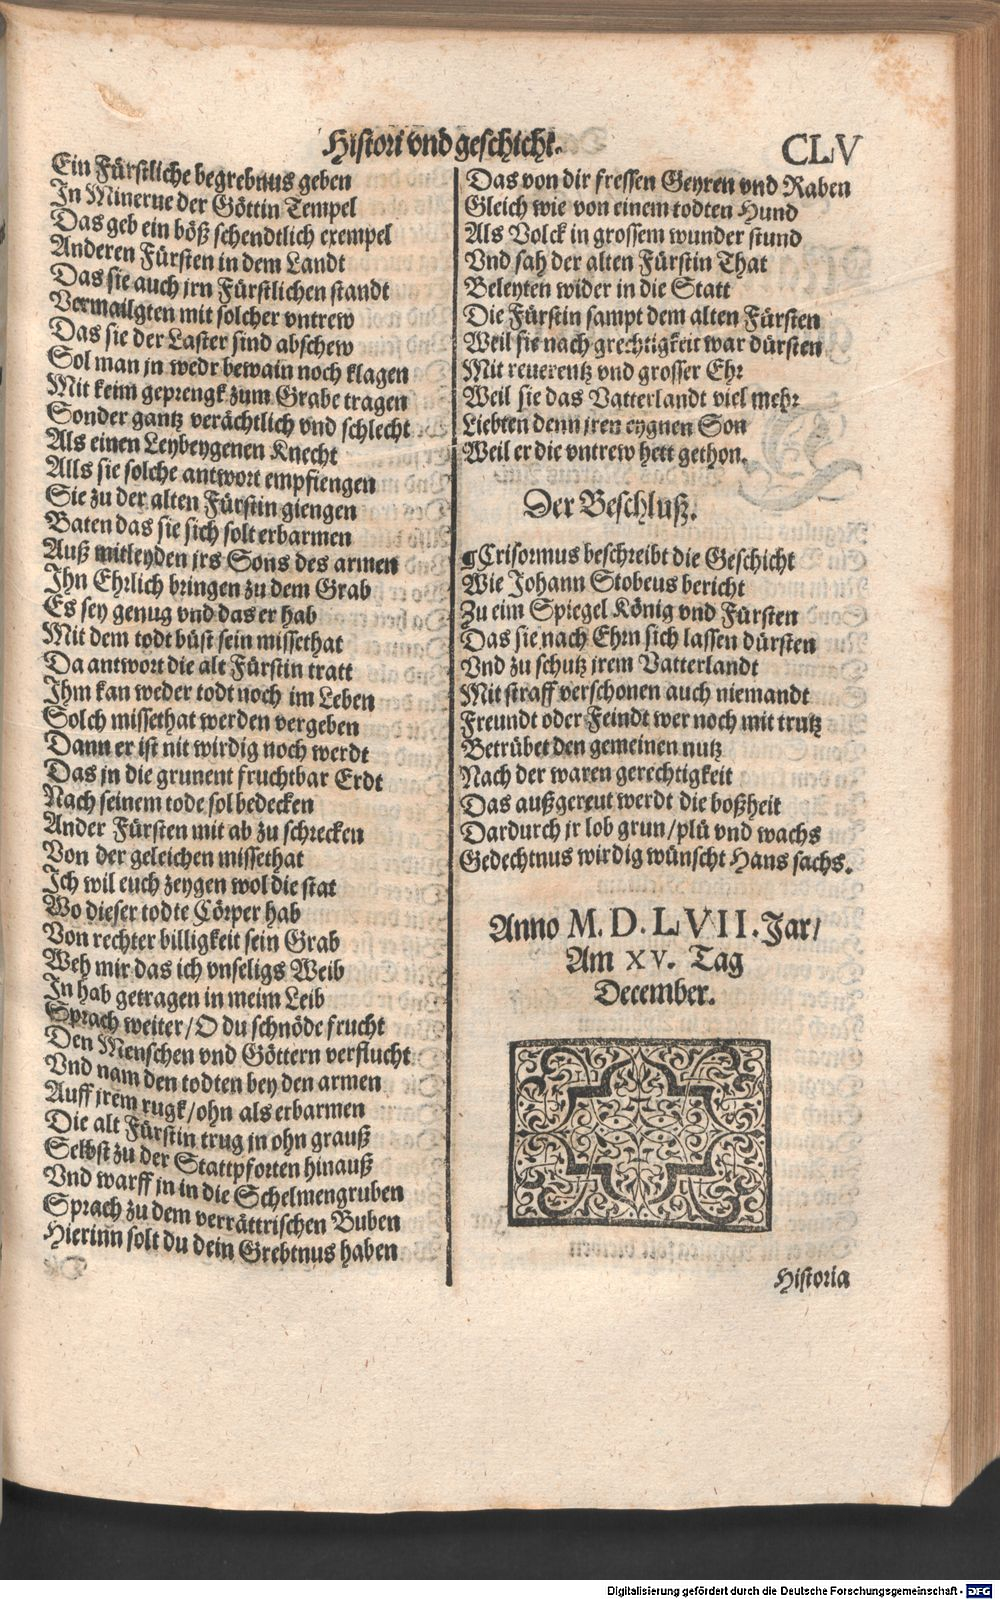 Histori vnd geschicht.
CLV
Ein Fürstliche begrebnus geben
In Minerue der Göttin Tempel
Das geb ein böß schendtlich exempel
Anderen Fürsten in dem Landt
Das sie auch jrn Fürstlichen standt
Vermailgten mit solcher vntrew
Das sie der Laster sind abschew
Sol man jn wedr bewain noch klagen
Mit keim geprengk zum Grabe tragen
Sonder gantz verächtlich vnd schlecht
Als einen Leybeygenen Knecht
Alls sie solche antwort empfiengen
Sie zu der alten Fürstin giengen
Baten das sie sich solt erbarmen
Auß mitleyden jrs Sons des armen
Ihn Ehrlich bringen zu dem Grab
Es sey genug vnd das er hab
Mit dem todt büst sein missethat
Da antwort die alt Fürstin tratt
Ihm kan weder todt noch im Leben
Solch missethat werden vergeben
Dann er ist nit wirdig noch werdt
Das jn die grunent fruchtbar Erdt
Nach seinem tode sol bedecken
Ander Fürsten mit ab zu schrecken
Von der geleichen missethat
Ich wil euch zeygen wol die stat
Wo dieser todte Cörper hab
Von rechter billigkeit sein Grab
Weh mir das ich vnseligs Weib
In hab getragen in meim Leib
Sprach weiter/ O du schnöde frucht
Den Menschen vnd Göttern verflucht
Vnd nam den todten bey den armen
Auff jrem rugk/ ohn als erbarmen
Die alt Fürstin trug jn ohn grauß
Selbst zu der Stattpforten hinauß
Vnd warff jn in die Schelmengruben
Sprach zu dem verrättrischen Buben
Hierinn solt du dein Grebtnus haben
Das von dir fressen Geyren vnd Raben
Gleich wie von einem todten Hund
Als Volck in grossem wunder stund
Vnd sah der alten Fürstin That
Beleyten wider in die Statt
Die Fürstin sampt dem alten Fürsten
Weil sie nach grechtigkeit war dürsten
Mit reuerentz vnd grosser Ehr
Weil sie das Vatterlandt viel mehr
Liebten denn jren eygnen Son
Weil er die vntrew hett gethon.
Der Beschluß.
Crisormus beschreibt die Geschicht
Wie Johann Stobeus bericht
Zu eim Spiegel König vnd Fürsten
Das sie nach Ehrn sich lassen dürsten
Vnd zu schutz jrem Vatterlandt
Mit straff verschonen auch niemandt
Freundt oder Feindt wer noch mit trutz
Betrübet den gemeinen nutz
Nach der waren gerechtigkeit
Das außgereut werdt die boßheit
Dardurch jr lob grun/ plü vnd wachs
Gedechtnus wirdig wünscht Hans sachs.
Anno M. D. LVII. Jar/
Am XV. Tag
December.
Historia
Digitalisierung gefördert durch die Deutsche Forschungsgemeinschaft - DFG